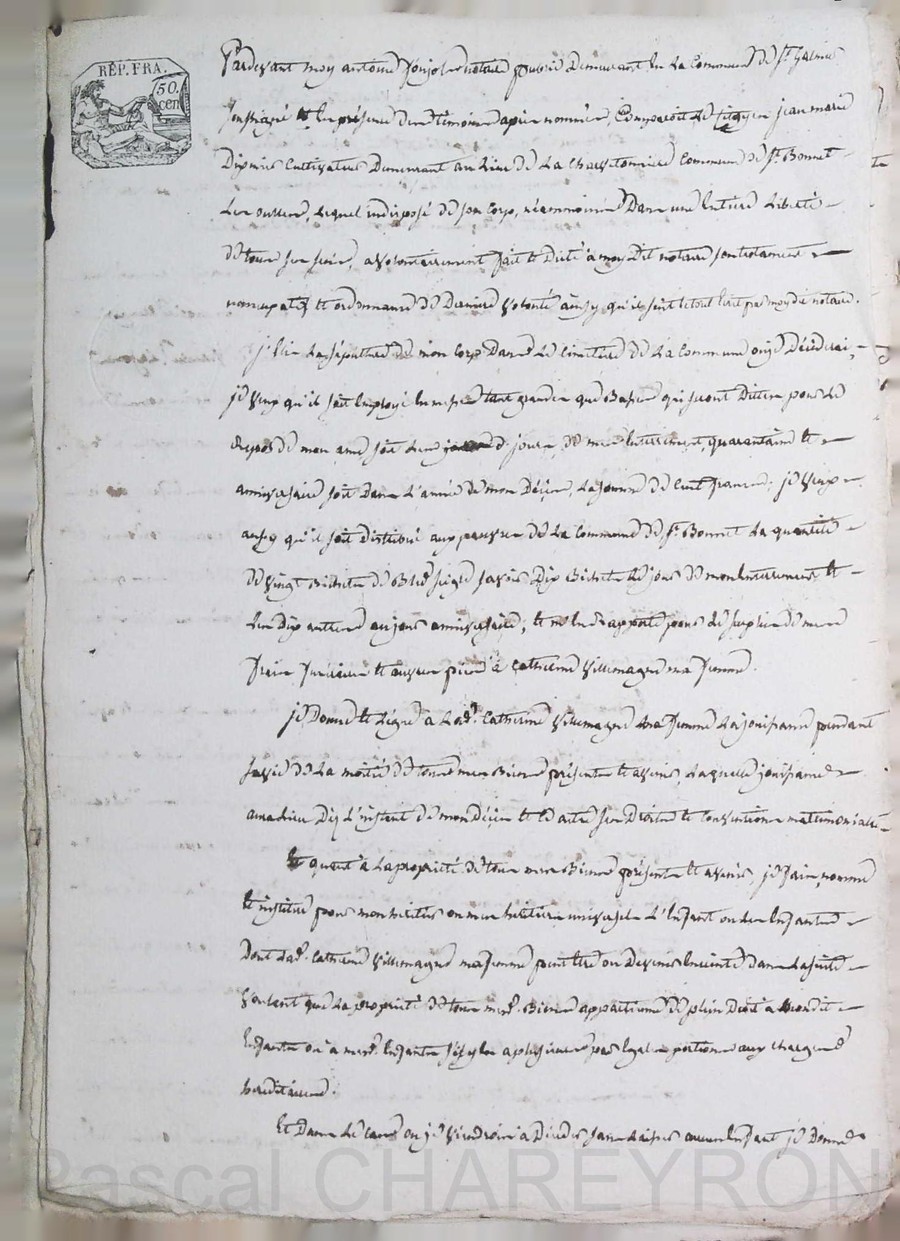 RÉP. FRA.
50.
cen
Pardevant moy antoine notaire public Demeurant en La Commune De St. Galmier
Soussigné et en présence Des témoins après nommés, Comparoit Le Citoyen jean marie
Dupuis Cultivateur Demeurant au Lieu De La Commune De St. Bonnet
Les oulles, Lequel indisposé De son Corp, néammoins Dans une Entiere Liberté
De tous ses sens, a volontairement fait et Dicté a moy Dit notaire son testament
noncupatif et ordonnance De Derniere volonté ainsy qu'il suit Le tout Ecrit par moy dit notaire.
j'Elis La sépulture de mon Corp Dans Le Cimetière De La Commune ou je Décéderai,
je veux qu'il soit Employé En messes tant grandes que Basses qui seront Dittes pour Le
Repos De mon ame soit Les jours De mes Enterrement, quarantaine et
anniversaire soit Dans L'année De mon Décès, La somme De Cent francs; je veux
aussy qu'il soit distribué aux pauvres De La Commune De St. Bonnet La quantité
De vingt Bichets De Bled seigle savoir Dix Bichets Le jour De mon Enterrement et
Les Dix autres au jour anniversaire, et m'En Rapporte pour Le surplus De mes
frais funéraires et œuvres pies à Catherine Villemagne ma femme.
je Donne et Lègue à Lad. Catherine Villemagne ma femme La jouissance pendant
sa vie De La moitié De tous mes Biens présents et avenir, Laquelle jouissance
aura lieu Dez L'instant De mon Décès et Ce outre ses Droits et Conventions matrimoniales
Et quant à La propriété De tous mes Biens présents et avenir, je fais, nomme
et institue pour mon héritier ou mes héritiers universels L'Enfant ou Les Enfants
Dont Lad. Catherine Villemagne ma femme peut Etre ou Devenir Enceinte Dans La suite
Voulant que La propriété De tous mesd. Biens appartienne De plein Droit a mondit
Enfant ou à mesd. Enfants s'il y En a plusieurs par Egales portions aux charges
héréditaires.
Et Dans Le Cas ou je viendrois à Décéder sans Laisser aucun Enfant je Donne
Pascal CHAREYRON